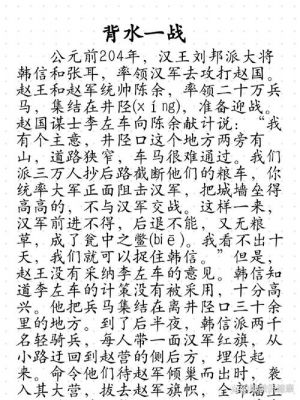 背水一战
公元前204年，汉王刘邦派大将
韩信和张耳，率领汉军去攻打赵国。
赵王和赵军统帅陈余，率领二十万兵
马，集结在井陉(xíng)，准备迎战。
赵国谋士李左车向陈余献计说：“我
有个主意，井陉口这个地方两旁有
山，道路狭窄，车马很难通过。我们
派三万人抄后路截断他们的粮车，你
统率大军正面阻击汉军，把城墙垒得
高高的，不与汉军交战。这样一来，
汉军前进不得，后退不能，又无粮
草，成了瓮中之鳖(biē)。我看不出十
天，我们就可以捉住韩信。”但是，
赵王没有采纳李左车的意见。韩信知
道李左车的计策没有被采用，十分高
兴。他把兵马集结在离井陉口三十余
里的地方。到了后半夜，韩信派两千
名轻骑兵，每人带一面汉军红旗，从
小路迂回到赵营的侧后方，埋伏起
来。命令他们待赵军倾巢而出时，袭
入其大营，拔去赵军旗帜，全部插上